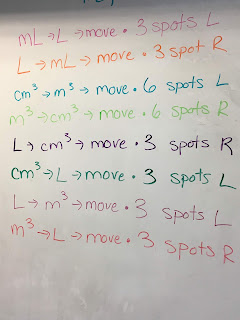 mL → L → move • 3 spots L
L → mL → move • 3 spot R
cm³ → m³ → move • 6 spots L
m³ → cm³ → move • 6 spots R
L → cm³ → move • 3 spots R
cm³ → L → move • 3 spots L
L → m³ → move • 3 spots L
m³ → L → move • 3 spots R